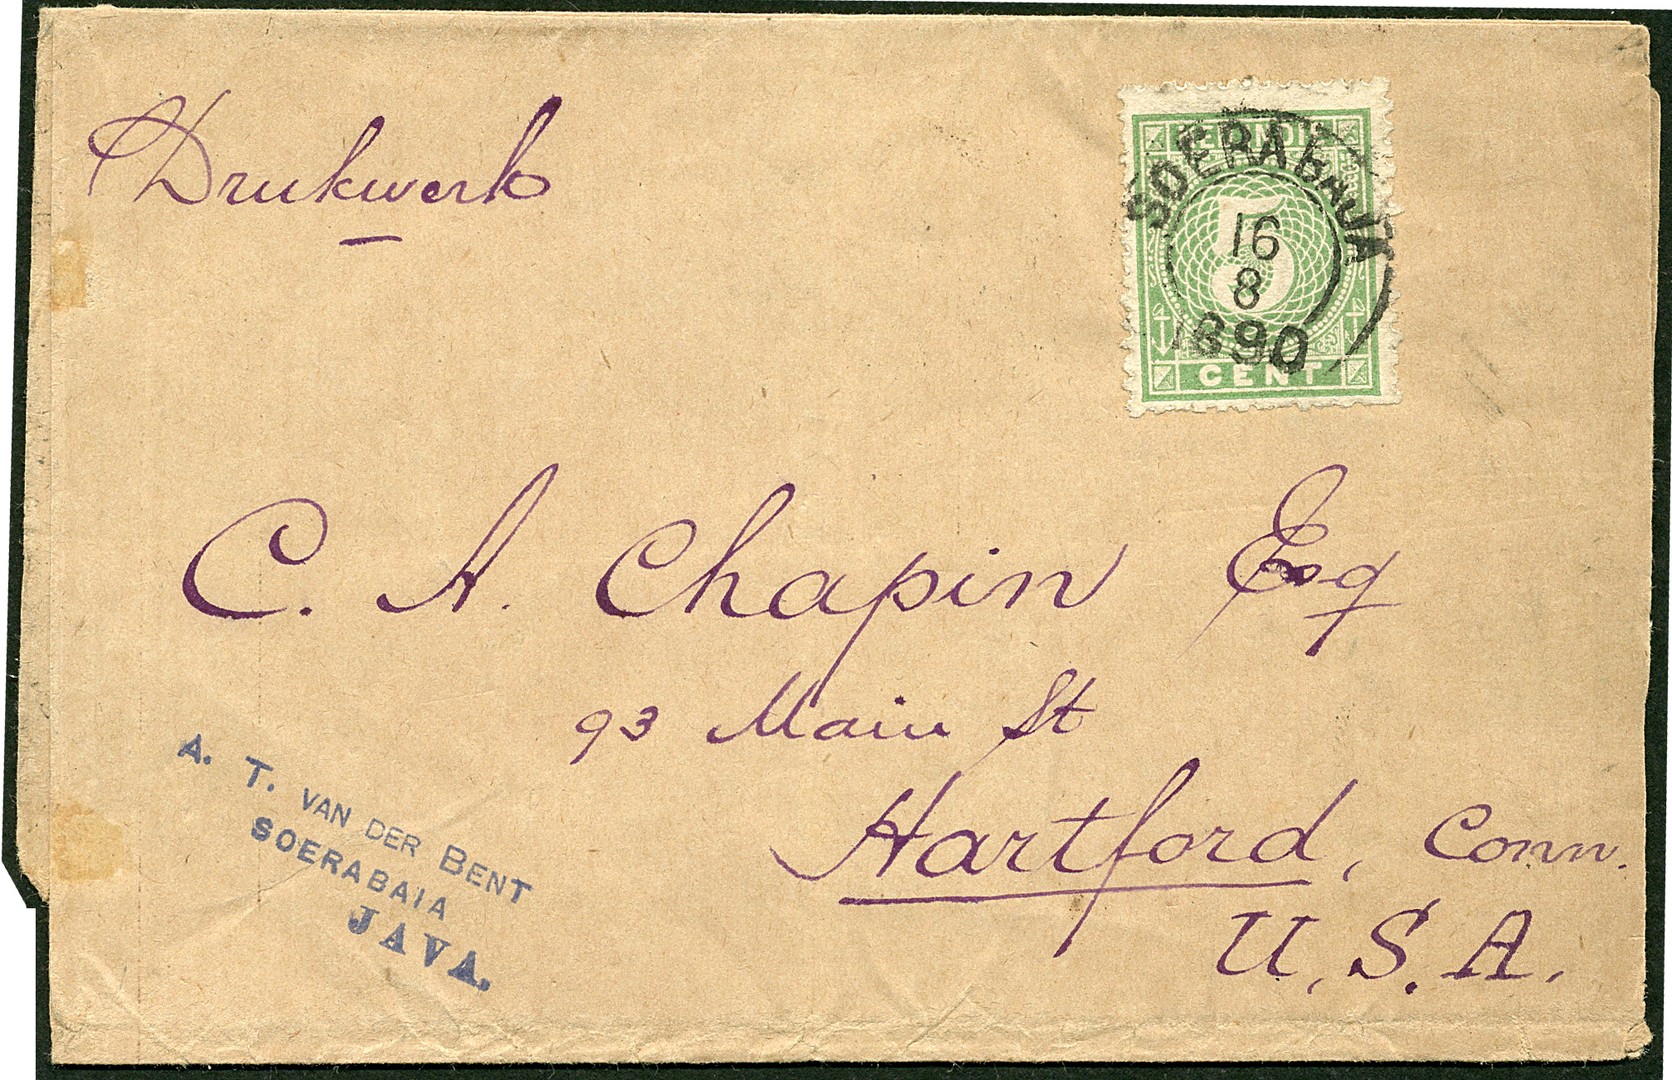 Drukwerk
NED. INDIE
5
CENT
SOERABAIJA
16
8
1890
C. A. Chapin Esq
93 Main St
Hartford, Conn.
U.S.A.
A. T. VAN DER BENT
SOERABAIA
JAVA.